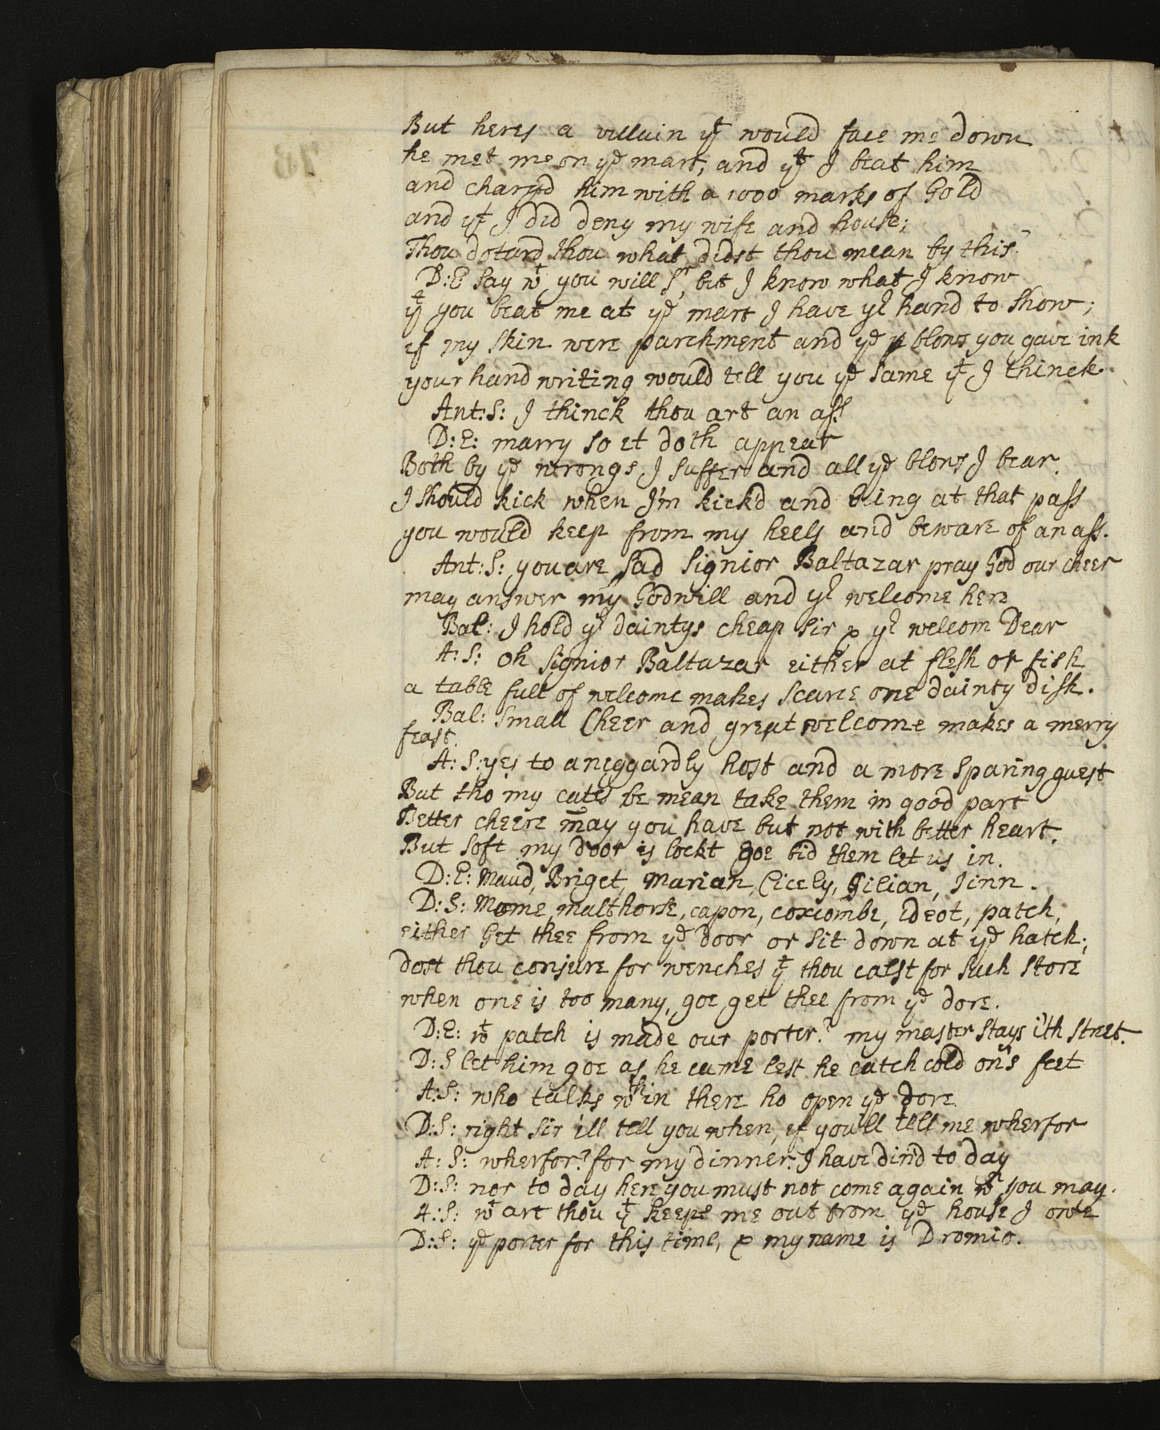 But heres a villain yt would face me down
he met me on ye mart, and yt I beat him
and charg'd him with a 1000 marks of Gold
and yt I did deny my wife and house;
Thou dotard thou what didst thou mean by this?
D:E Say wt you will Sr, but I know what I know
yt you beat me at ye mart I have yr hand to show;
if my skin were parchment and ye blows you gave ink
your hand writing would tell you ye same yt I thinck.
Ant:S: I thinck thou art an ass
D:E: marry so it doth appear
Both by ye wrongs I suffer and all ye blows I bear.
I should kick when I'm kickd and being at that pass
you would keep from my heels and beware of an ass.
Ant:S: you are sad Signior Baltazar pray God our cheer
may answer my Godwill and yr welcome here
Bal: I hold yr daintys cheap sir & yr welcom Dear
A:S: oh Signior Baltazar either at flesh or fish
a table full of welcome makes scarce one dainty dish.
Bal: Small Cheer and great welcome makes a merry
feast.
A:S: yes to a niggardly host and a more sparing guest
But tho my cates be mean take them in good part
Better cheere may you have but not with better heart.
But soft my door is lockt goe bid them let us in.
D:E: Maud, Briget, Marian, Cicely, Gilian, Jinn.
D:S: Mome, malthorse, capon, coxcombe, ideot, patch,
either Get thee from ye door or sit down at ye hatch;
dost thou conjure for wenches yt thou calst for such store
when one is too many, goe get thee from ye dore.
D:E: wt patch is made our porter? my master stays i'th street.
D:S let him goe as he came lest he catch cold on's feet
A:S: who talks wthin there ho open ye dore
D:S: right sir ill tell you when, if youll tell me wherfor
A:S: wherfor? for my dinner. I have dind to day
D:S: nor to day here you must not come again wn you may.
A:S: wt art thou yt keeps me out from ye house I owe
D:S: ye porter for this time, & my name is Dromio.